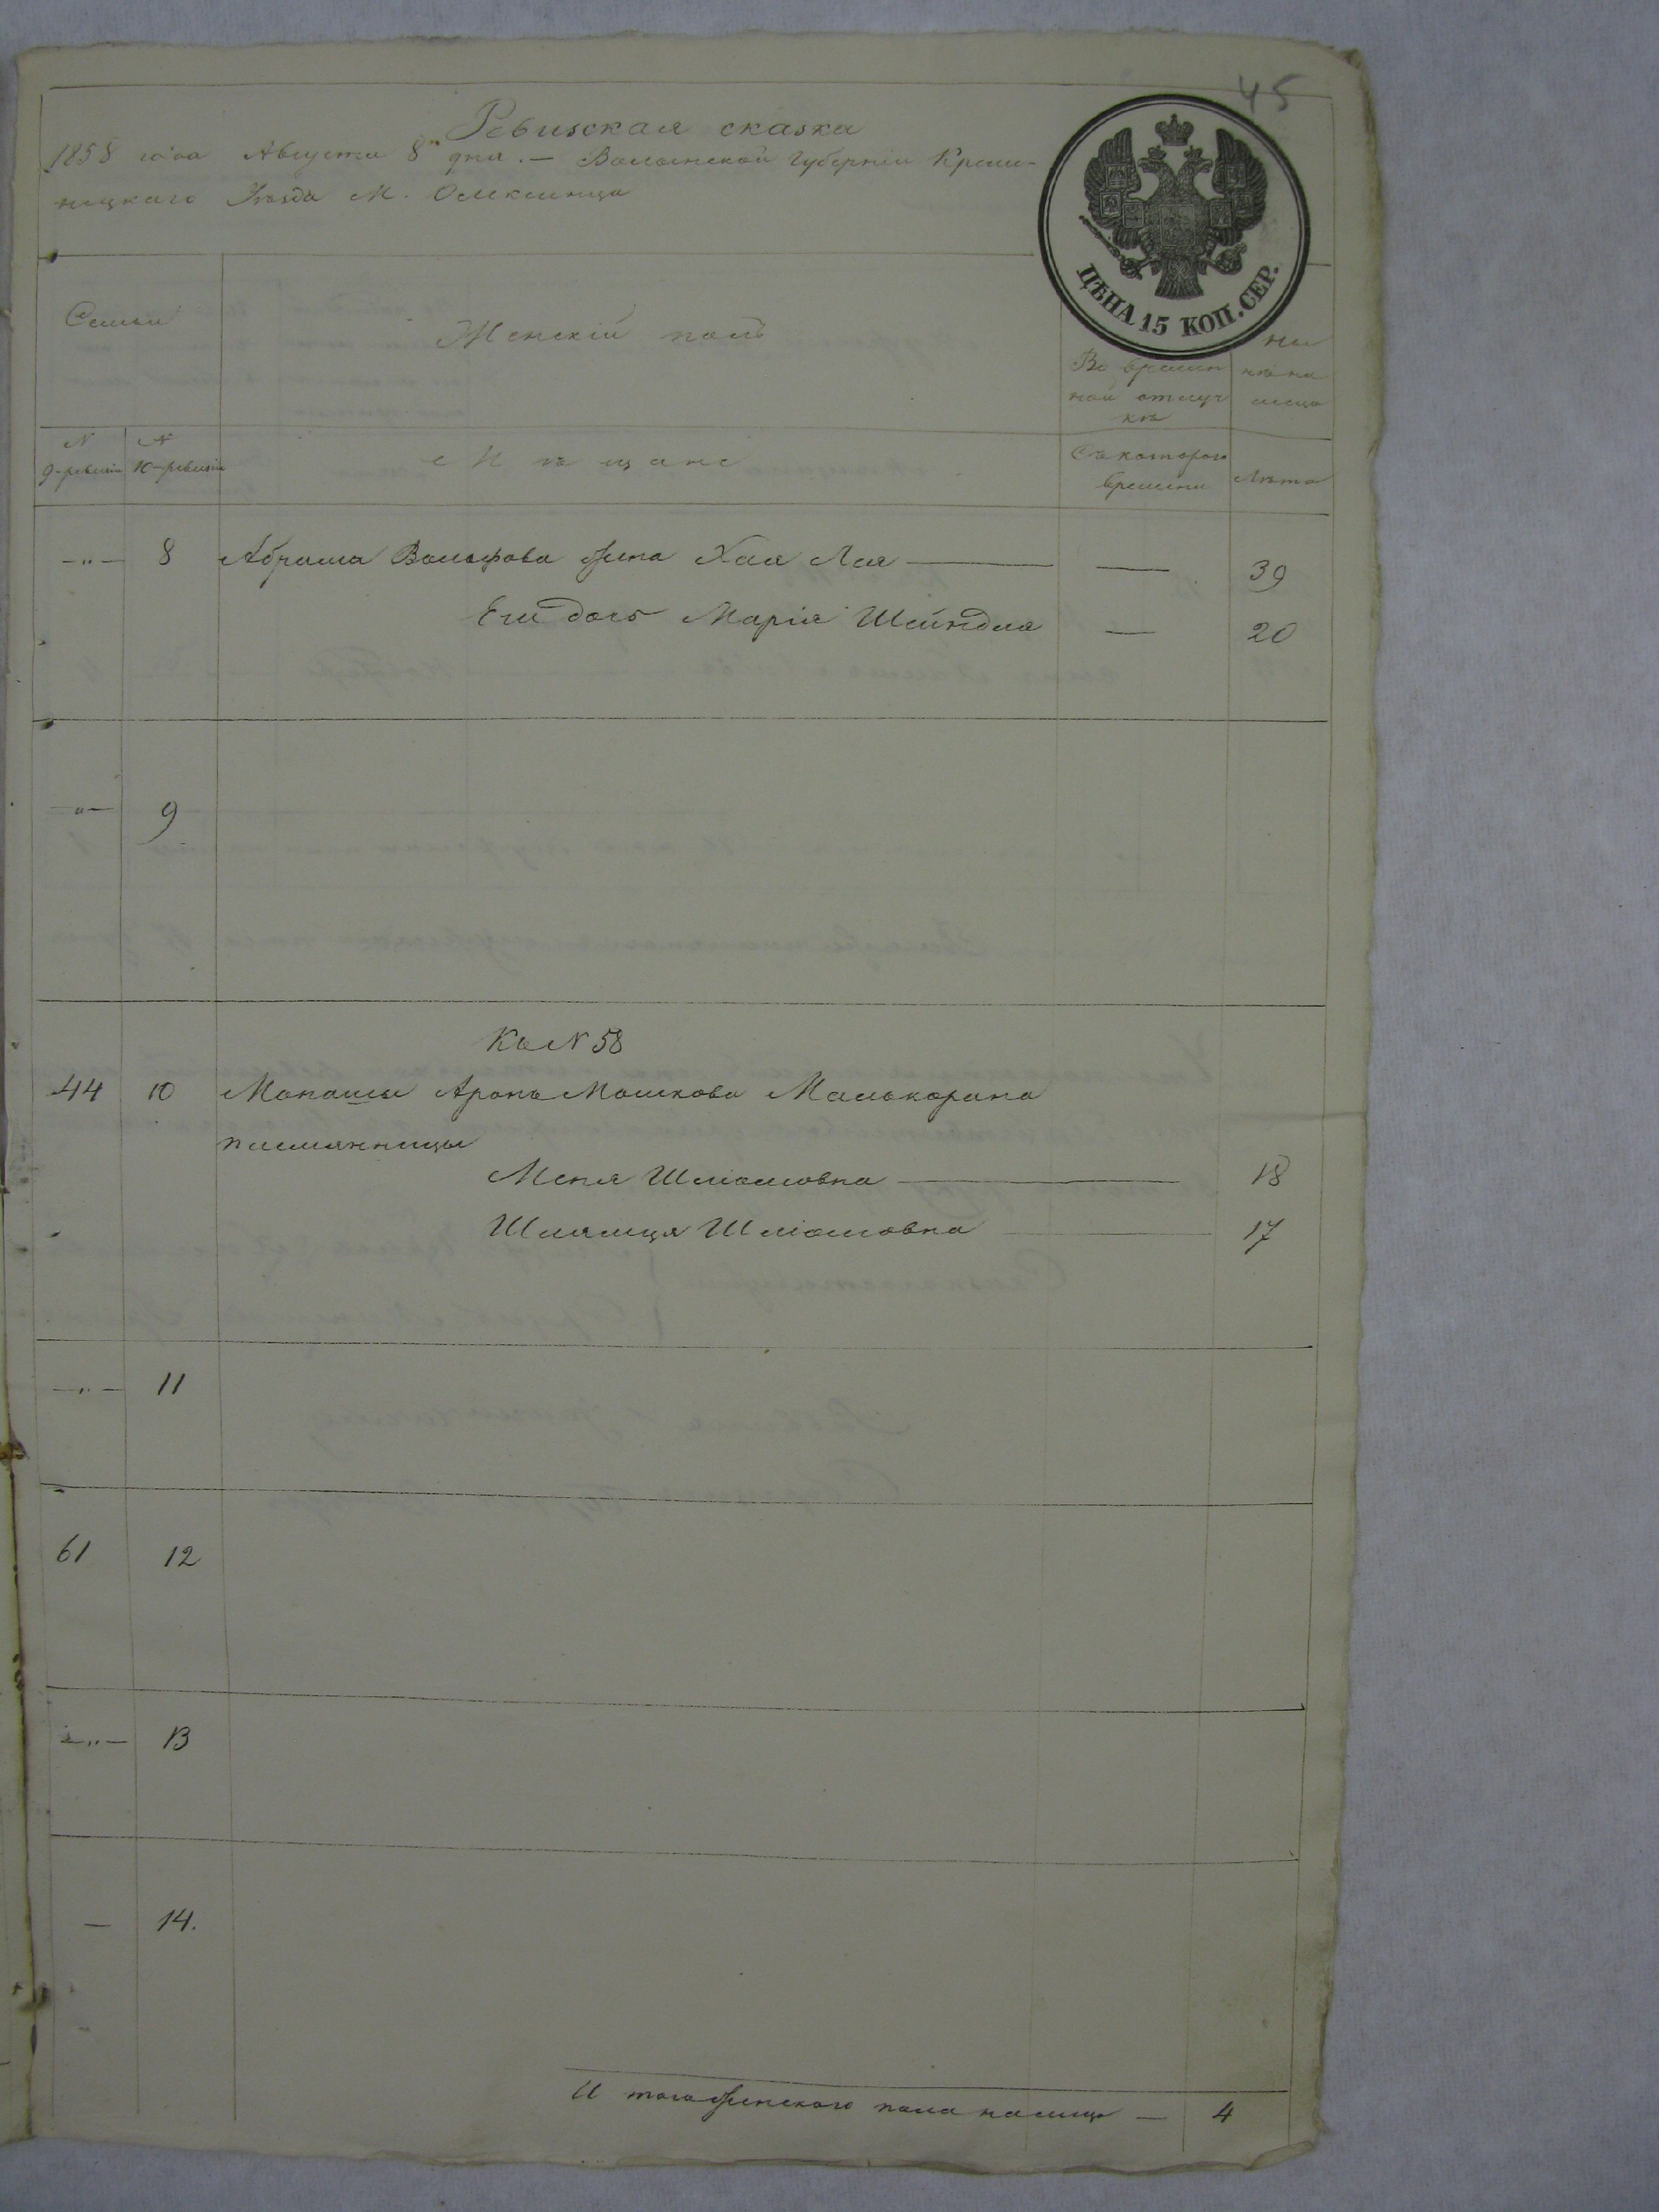 45
Ревизская сказка
1858 года Августа 8 дня. — Волынской Губерніи Креме-
нецкаго Уѣзда М. Олексинца
ЦѢНА 15 КОП. СЕР.
Семьи
Женскій полъ
Во времен
ной отлуч
кѣ
Ны
нѣ на
лицо
N
9-ревизіи
N
10-ревизіи
Мѣщане
Съ котораго
времени
Лѣта
—"— 8 Абрама Вольфова жена Хая Лея — — 39
Ей дочь Марія Шейндля — 20
—"— 9
Къ N 58
44 10 Мопаши Аронъ Мошкова Малькорина
племянницы
Меня Шліомовна — 18
Шлямця Шліомовна — 17
—"— 11
61 12
—"— 13
— 14.
И того женского пола налицо — 4